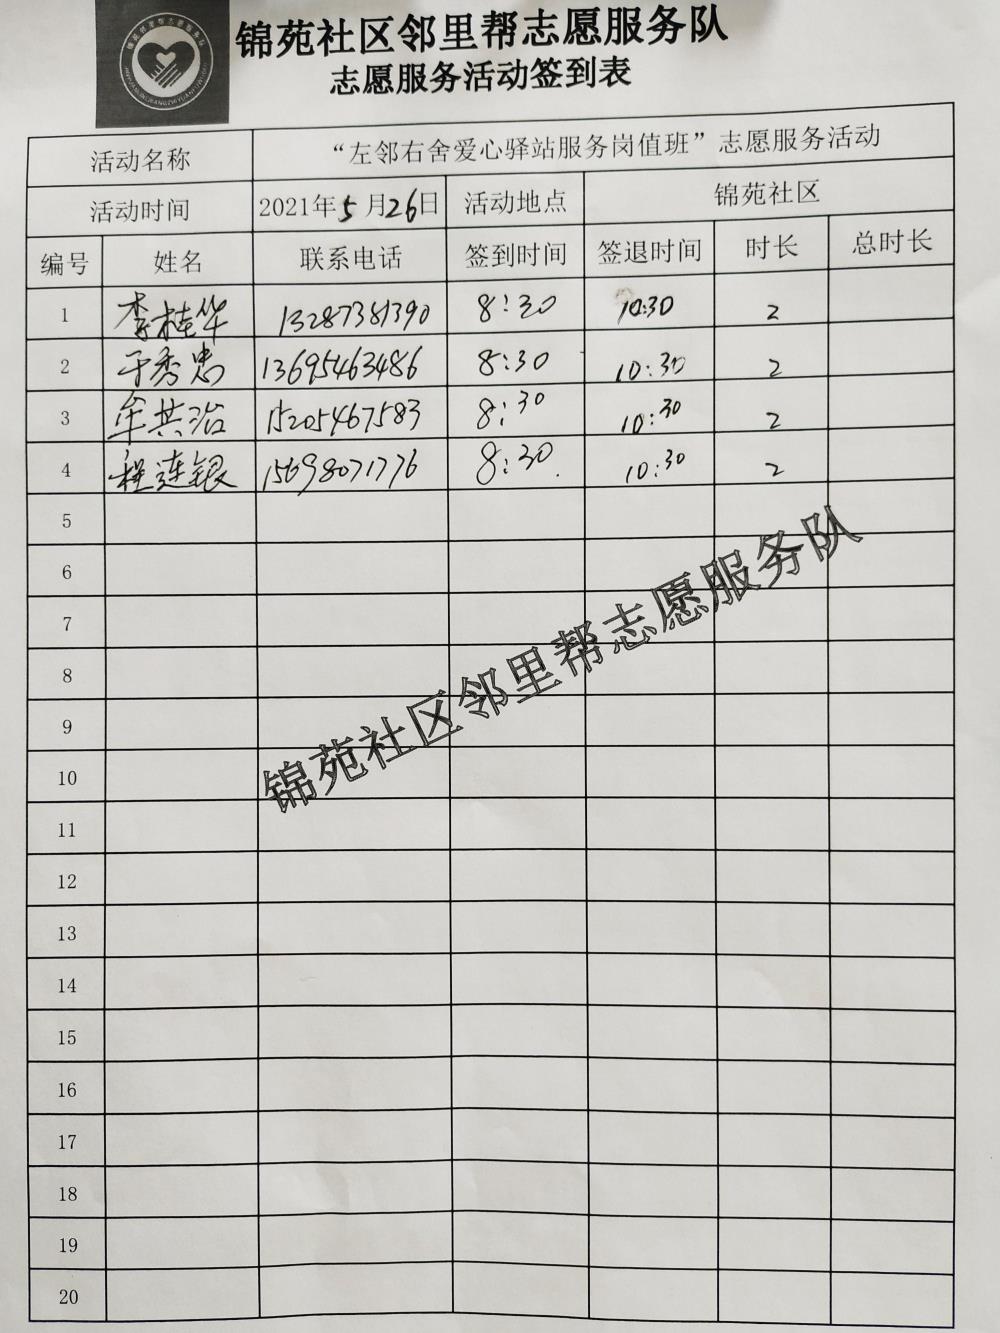 锦苑社区邻里帮志愿服务队
志愿服务活动签到表
活动名称 “左邻右舍爱心驿站服务岗值班”志愿服务活动
活动时间 2021年5月26日 活动地点 锦苑社区
编号 姓名 联系电话 签到时间 签退时间 时长 总时长
1 李桂华 13287381390 8:30 10:30 2
2 于秀忠 13695463486 8:30 10:30 2
3 牟共治 15205467583 8:30 10:30 2
4 程连银 15698071776 8:30 10:30 2
5
6
7
8
9
10
11
12
13
14
15
16
17
18
19
20
锦苑社区邻里帮志愿服务队